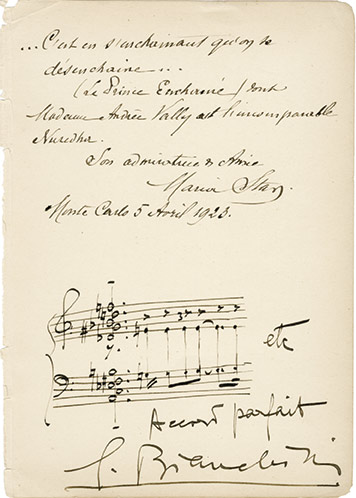 ...C'est en s'enchainant qu'on se
désenchaine...
(Le Prince Enchainé) dont
Madame Andrée Vally est l'incomparable
Nuredha.
Son admiratrice & Amie
Maria Star.
Monte Carlo 5 Avril 1923.
etc
Accord parfait
G.